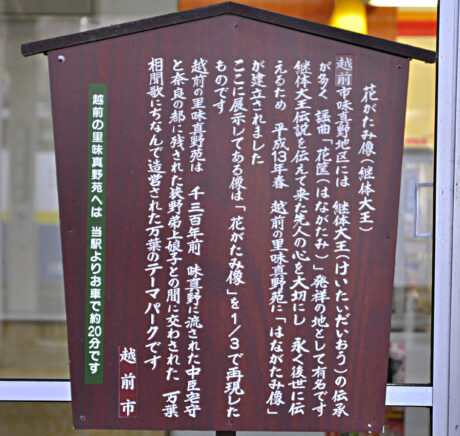 花がたみ像(継体大王)
越前市味真野地区には 継体大王(けいたいだいおう)の伝承
が多く 謡曲「花筐(はながたみ)」発祥の地として有名です
継体大王伝説を伝えて来た先人の心を大切にし 永く後世に伝
えるため 平成13年春 越前の里味真野苑に「はながたみ像」
が建立されました
ここに展示してある像は「花がたみ像」を1/3で再現した
ものです
越前の里味真野苑は 千三百年前 味真野に流された中臣宅守
と奈良の都に残された狭野弟上娘子との間に交わされた 万葉
相聞歌にちなんで造営された万葉のテーマパークです
越前市
越前の里味真野苑へは 当駅よりお車で約20分です